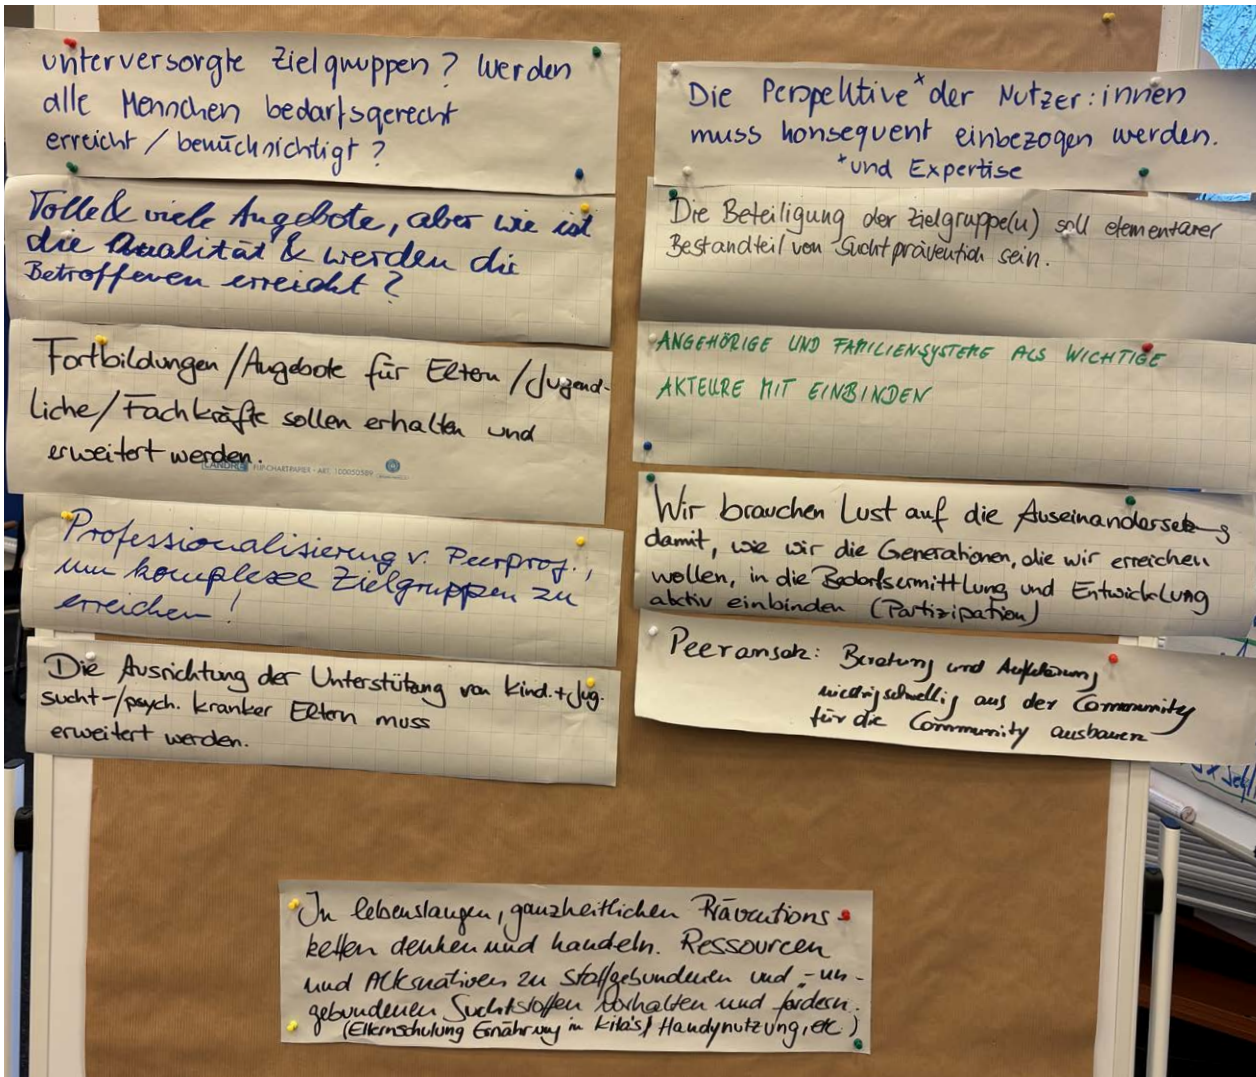 unterversorgte Zielgruppen? Werden
alle Menschen bedarfsgerecht
erreicht / berücksichtigt?
Tolle & viele Angebote, aber wie ist
die Qualität & werden die
Betroffenen erreicht?
Fortbildungen/Angebote für Eltern/Jugend-
liche/Fachkräfte sollen erhalten und
erweitert werden.
LANDRÉ FLIPCHARTPAPIER · ART. 100050589
Professionalisierung v. Peerproj.,
um komplexe Zielgruppen zu
erreichen!
Die Ausrichtung der Unterstützung von Kind.+Jug.
sucht-/psych. kranker Eltern muss
erweitert werden.
Die Perspektive* der Nutzer:innen
muss konsequent einbezogen werden.
*und Expertise
Die Beteiligung der Zielgruppe(n) soll elementarer
Bestandteil von Suchtprävention sein.
ANGEHÖRIGE UND FAMILIENSYSTEME ALS WICHTIGE
AKTEURE MIT EINBINDEN
Wir brauchen Lust auf die Auseinandersetzg
damit, wie wir die Generationen, die wir erreichen
wollen, in die Bedarfsermittlung und Entwicklung
aktiv einbinden (Partizipation)
Peeransatz: Beratung und Aufklärung
niedrigschwellig aus der Community
für die Community ausbauen
In lebenslangen, ganzheitlichen Präventions
ketten denken und handeln. Ressourcen
und Alternativen zu stoffgebundenen und -un-
gebundenen Suchtstoffen vorhalten und fördern.
(Elternschulung Ernährung in Kita's/ Handynutzung, etc)